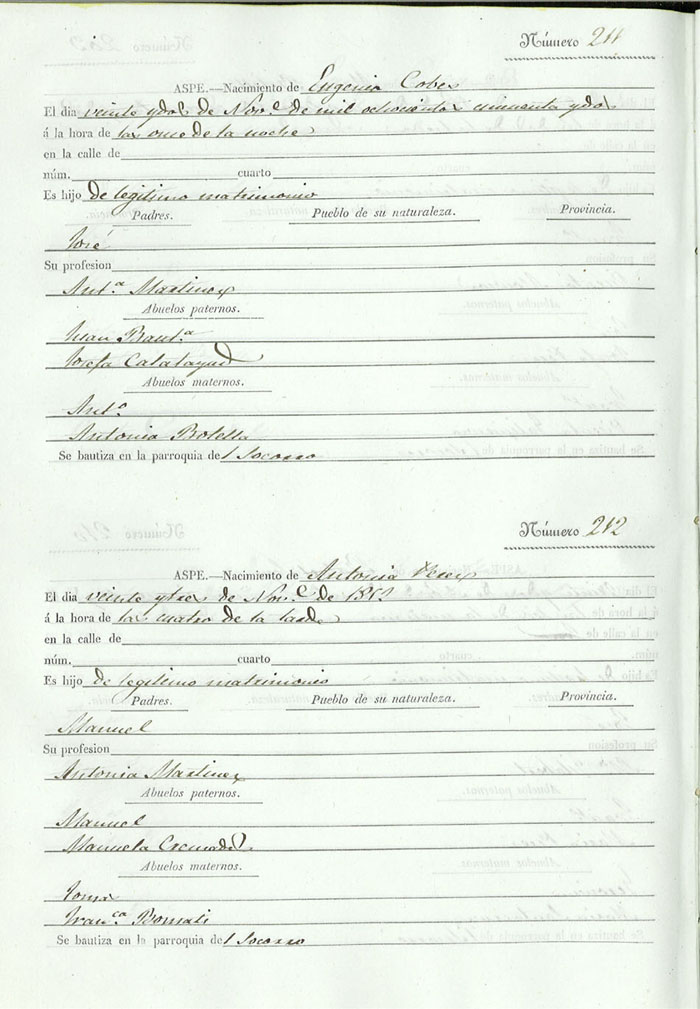 Número 211
ASPE.—Nacimiento de Eugenia Cobes
El dia veinte y dos de Nov.e de mil ochocientos cincuenta y dos
á la hora de las once de la noche
en la calle de
núm. cuarto
Es hijo de legitimo matrimonio
Padres. Pueblo de su naturaleza. Provincia.
José
Su profesion
Ant.a Martinez
Abuelos paternos.
Juan Baut.a
Josefa Calatayud
Abuelos maternos.
Ant.o
Antonia Botella
Se bautiza en la parroquia del Socorro
Número 212
ASPE.—Nacimiento de Antonia Perez
El dia veinte y tres de Nov.e de 1852
á la hora de las cuatro de la tarde
en la calle de
núm. cuarto
Es hijo de legitimo matrimonio
Padres. Pueblo de su naturaleza. Provincia.
Manuel
Su profesion
Antonia Martinez
Abuelos paternos.
Manuel
Manuela Cremades
Abuelos maternos.
Tomas
Fran.ca
Se bautiza en la parroquia del Socorro